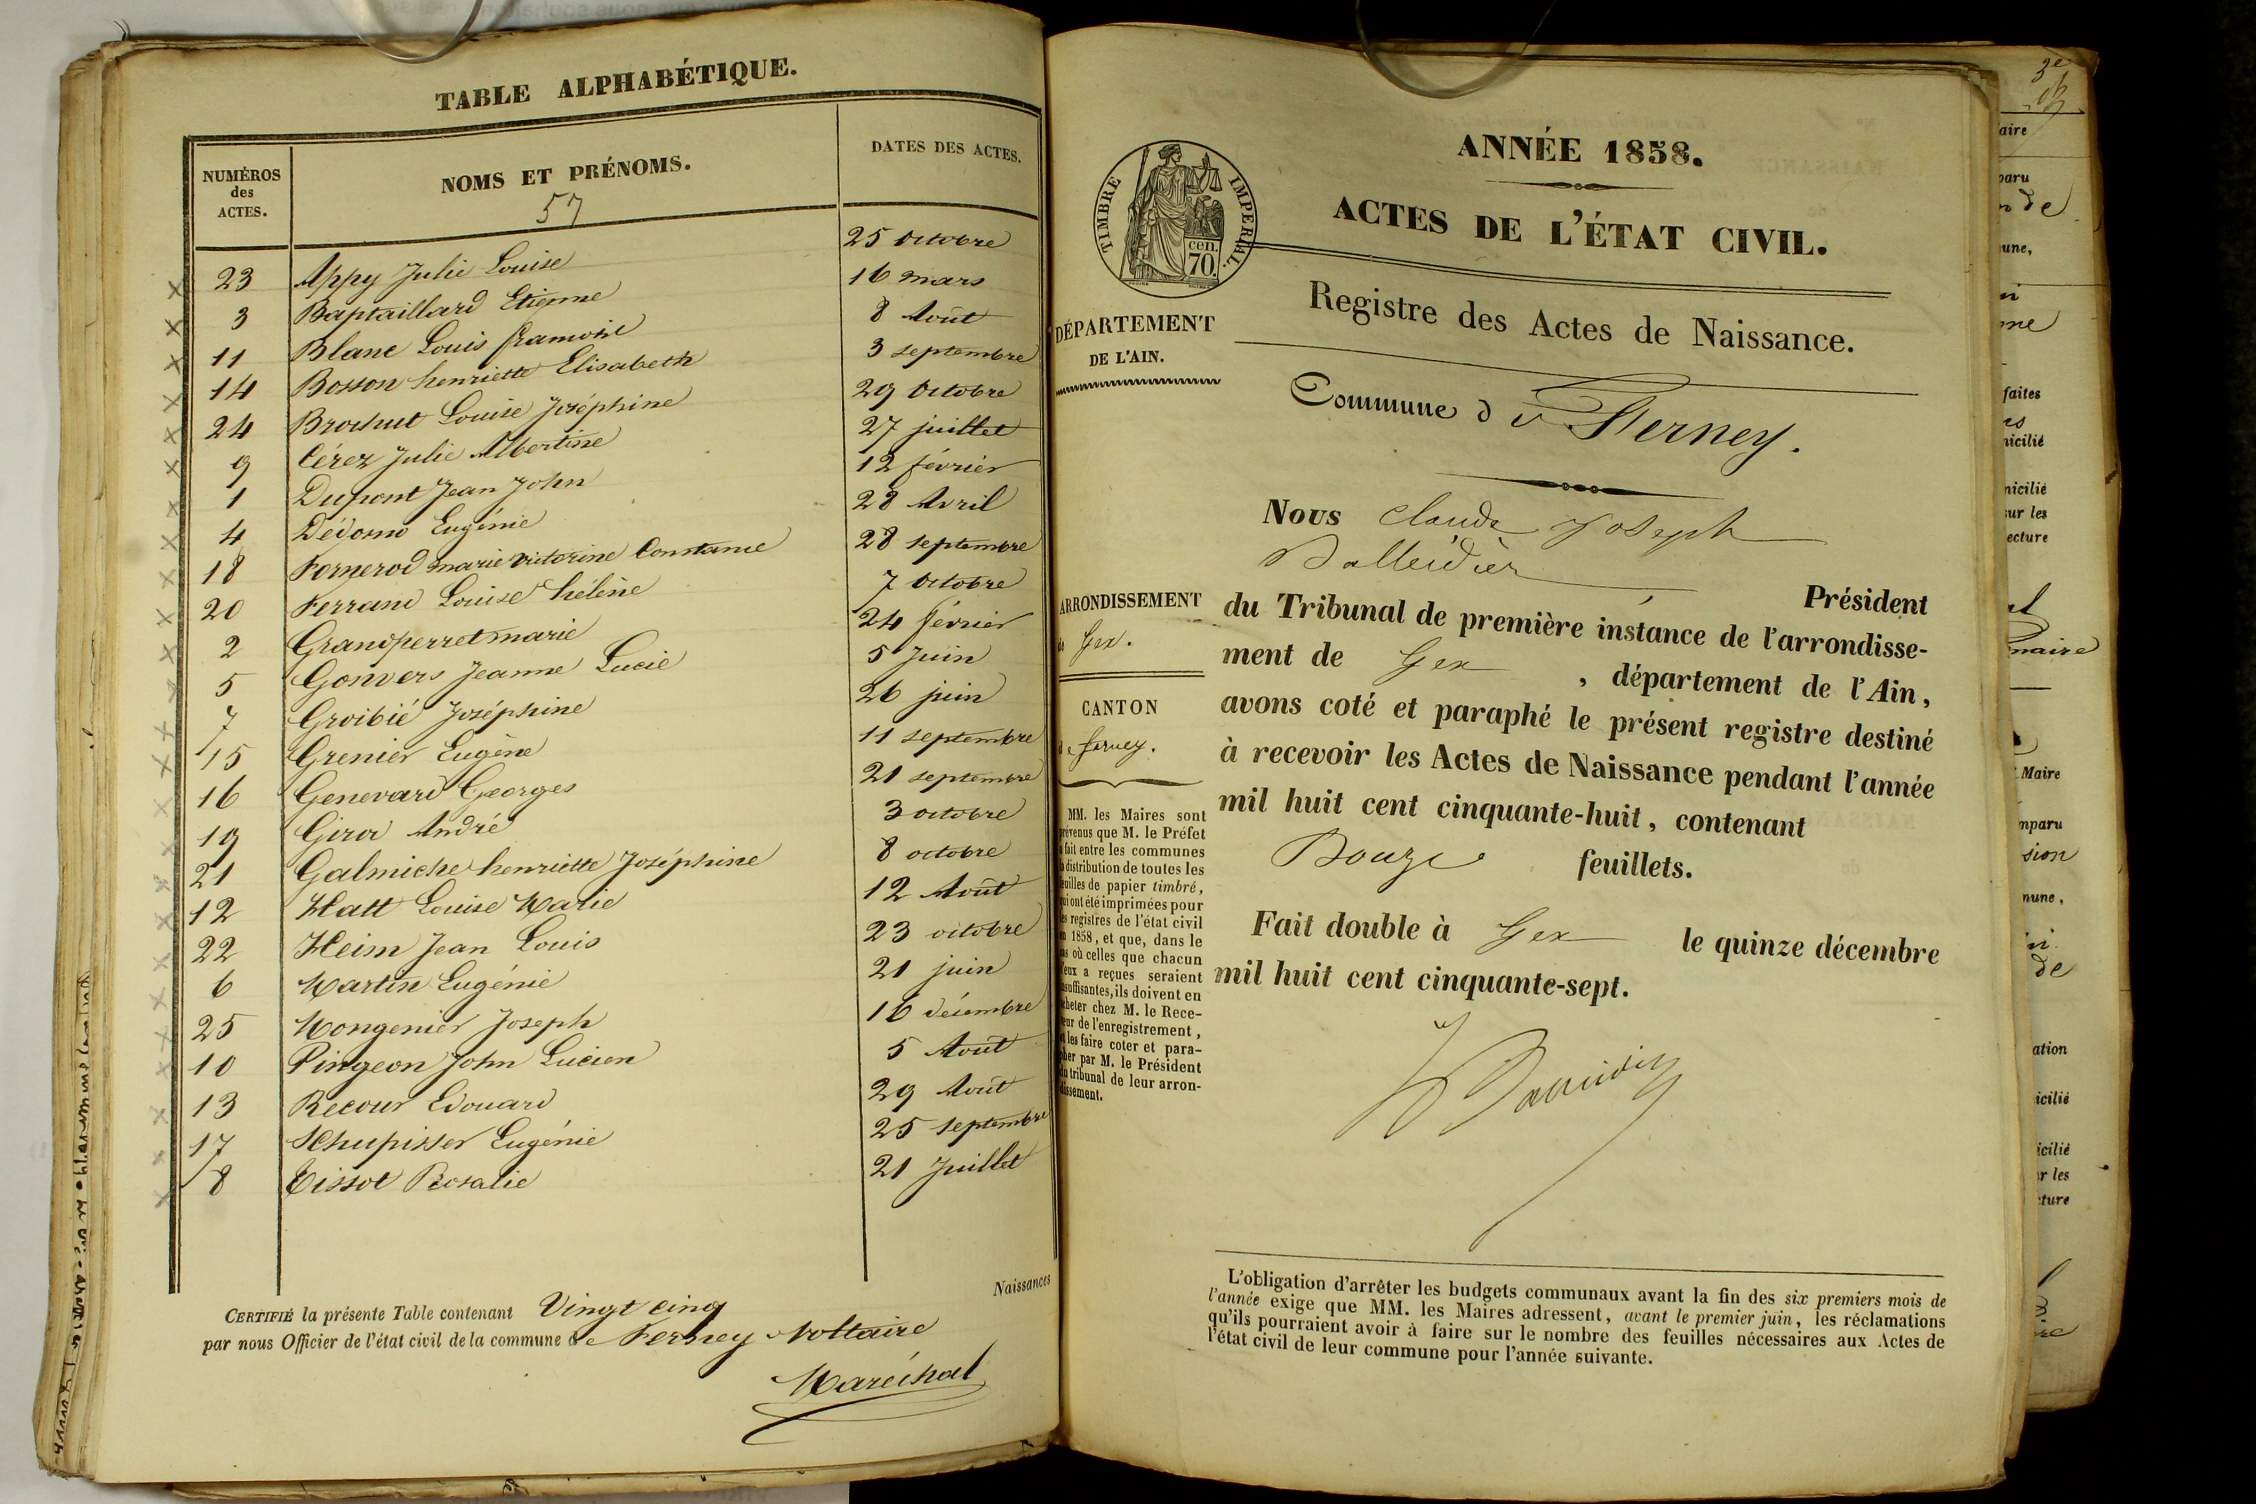 TABLE ALPHABÉTIQUE.
NUMÉROS des ACTES.
NOMS ET PRÉNOMS.
DATES DES ACTES.
57
23 Appy Julie Louise 25 Octobre
3 Baptaillard Etienne 16 mars
11 Blanc Louis 8 Août
14 Bosson henriette Elisabeth 3 septembre
24 Brochut Louise Joséphine 29 Octobre
9 Cérez Julie Albertine 27 juillet
1 Dupont Jean John 12 février
4 Eugénie 28 Avril
18 Fornerod marie victorine Constance 28 septembre
20 Ferrand Louise hélène 7 Octobre
2 Grandperret marie 24 février
5 Gonvers Jeanne Lucie 5 Juin
7 Groibié Joséphine 26 juin
15 Grenier Eugène 11 septembre
16 Genevard Georges 21 septembre
19 Girod André 3 octobre
21 Galmiche henriette Joséphine 8 octobre
12 Hatt Louise Marie 12 Août
22 Heim Jean Louis 23 octobre
6 Martin Eugénie 21 juin
25 Mongenier Joseph 16 décembre
10 Pingeon John Lucien 5 Août
13 Recour Edouard 29 Août
17 Schupisser Eugénie 25 septembre
8 Tissot Rosalie 21 Juillet
CERTIFIÉ la présente Table contenant Vingt cinq Naissances
par nous Officier de l'état civil de la commune de Ferney Voltaire
Maréchal
TIMBRE IMPERIAL.
cen.
70.
ANNÉE 1858.
ACTES DE L'ÉTAT CIVIL.
Registre des Actes de Naissance.
DÉPARTEMENT
DE L'AIN.
Commune d e Ferney.
ARRONDISSEMENT
de Gex.
CANTON
de ferney.
MM. les Maires sont
prévenus que M. le Préfet
a fait entre les communes
la distribution de toutes les
feuilles de papier timbré,
qui ont été imprimées pour
les registres de l'état civil
en 1858, et que, dans le
cas où celles que chacun
d'eux a reçues seraient
insuffisantes, ils doivent en
acheter chez M. le Rece-
veur de l'enregistrement,
et les faire coter et para-
pher par M. le Président
du tribunal de leur arron-
dissement.
Nous Claude Joseph
Balleidier Président
du Tribunal de première instance de l'arrondisse-
ment de Gex, département de l'Ain,
avons coté et paraphé le présent registre destiné
à recevoir les Actes de Naissance pendant l'année
mil huit cent cinquante-huit, contenant
Douze feuillets.
Fait double à Gex le quinze décembre
mil huit cent cinquante-sept.
L'obligation d'arrêter les budgets communaux avant la fin des six premiers mois de
l'année exige que MM. les Maires adressent, avant le premier juin, les réclamations
qu'ils pourraient avoir à faire sur le nombre des feuilles nécessaires aux Actes de
l'état civil de leur commune pour l'année suivante.